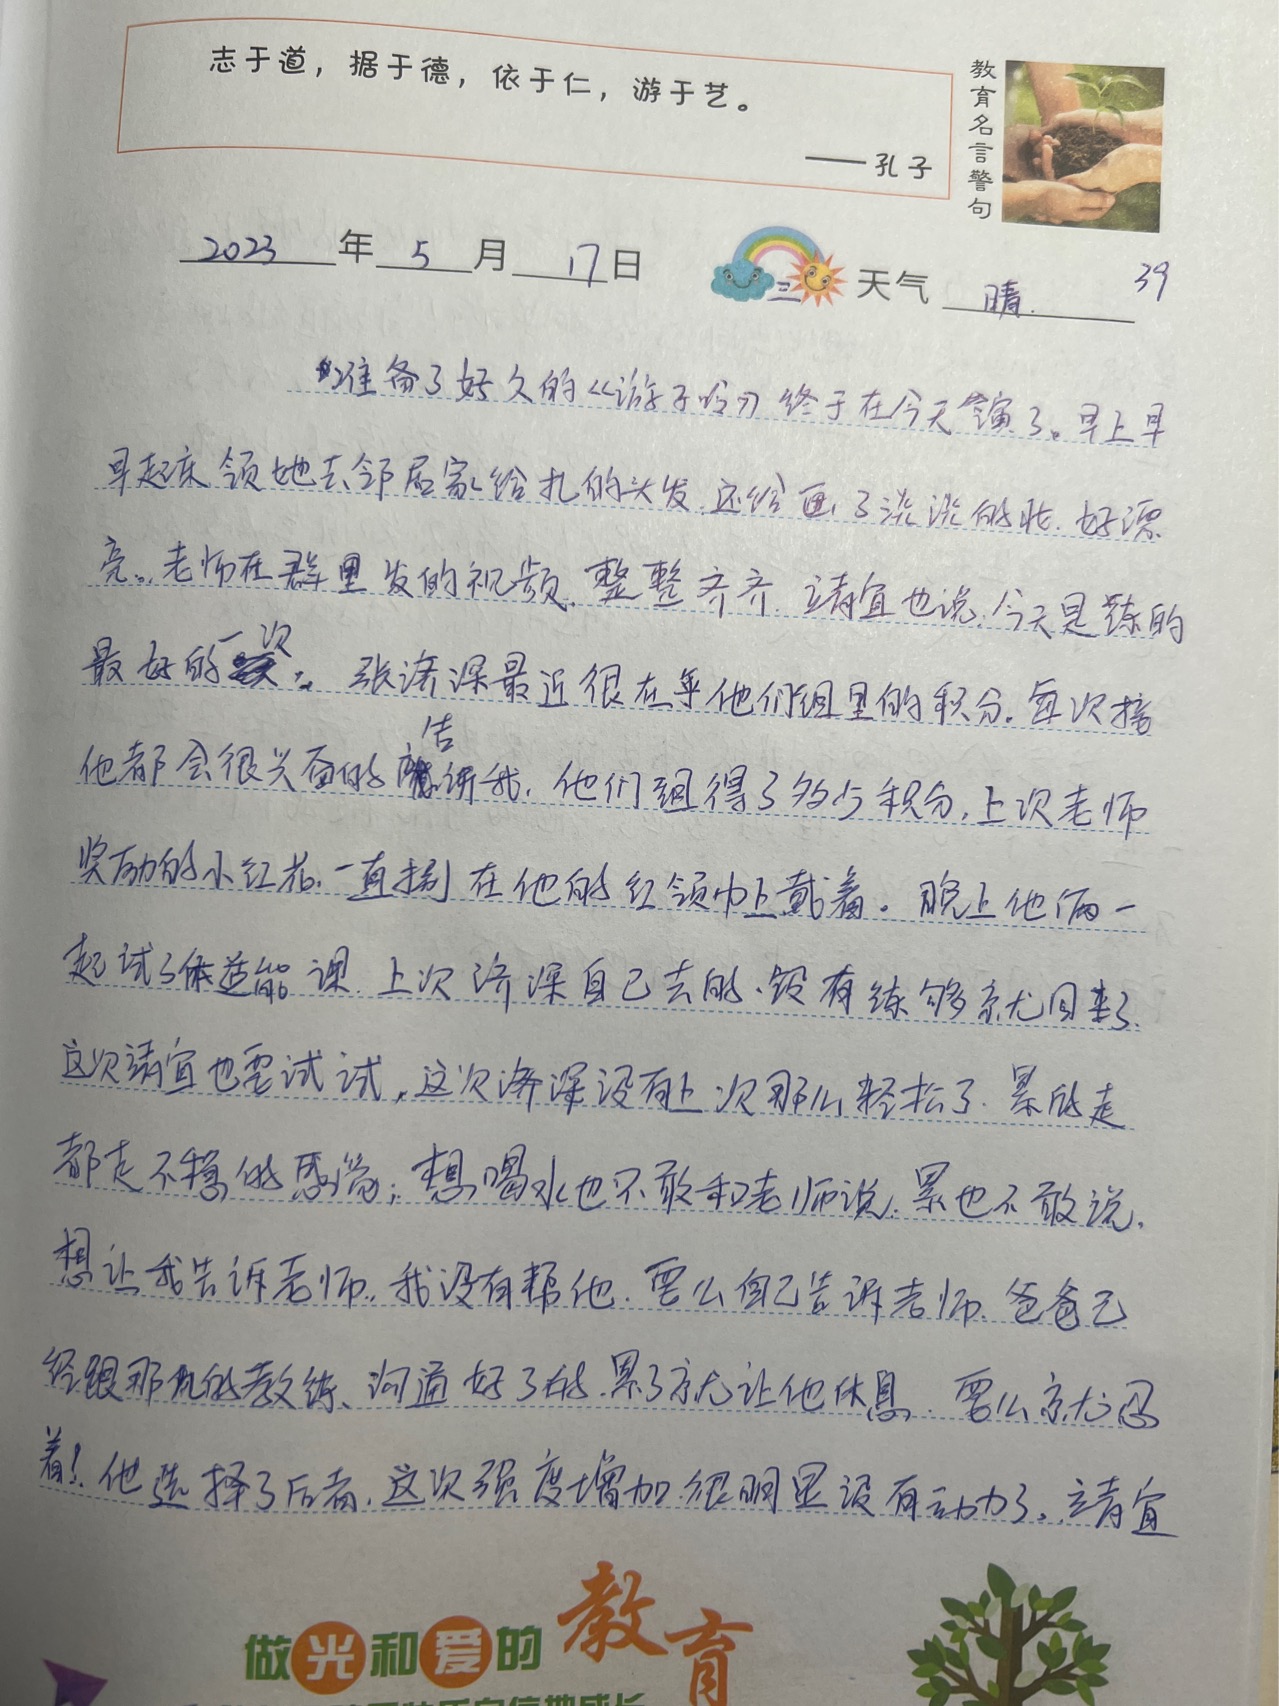 志于道，据于德，依于仁，游于艺。
——孔子
教育名言警句
2023年5月17日 三 天气 晴. 39
准备了好久的《游子吟》终于在今天演了。早上早
早起床领她去邻居家给扎的头发.还给画了淡淡的妆.好漂
亮。老师在群里发的视频.整整齐齐.靖宜也说.今天是练的
最好的一次。张济深最近很在乎他们组里的积分.每次接
他都会很兴奋的告讲我.他们组得了多少积分,上次老师
奖励的小红花.一直捌在他的红领巾上戴着。晚上他俩一
起试了体适能课.上次济深自己去的.没有练够就回来了.
这次靖宜也要试试,这次济深没有上次那么轻松了.累的走
都走不稳的感觉;想喝水也不敢和老师说.累也不敢说.
想让我告诉老师.我没有帮他.要么自己告诉老师.爸爸已
经跟那的教练、沟通好了的.累了就让他休息.要么就忍
着!他选择了后者.这次强度增加.很明显没有动力了。靖宜
做光和爱的教育